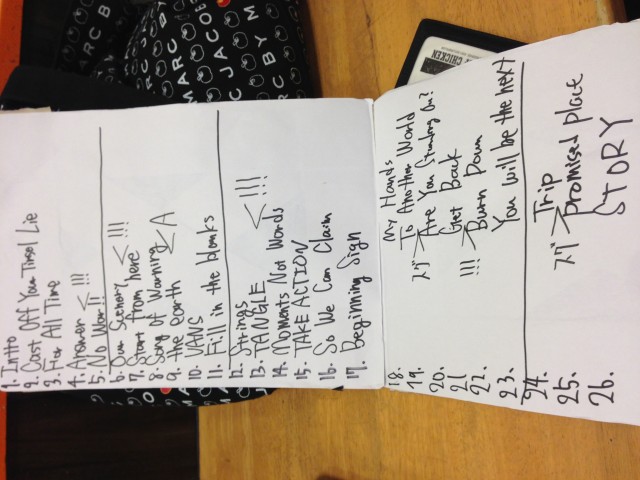 1. Intro
2. Cast Off You Timel Lie
3. For All Time
4. Answer < !!!
5. No War!!
6. Our Scenery
7. Start from here < !!!
8. Song of Warning
9. the earth < A
10. VANS
11. Fill in the blanks
12. Strings
13. TANGLE < !!!
14. Moments Not Words
15. TAKE ACTION
16. So We Can Claim
17. Beginning Sign
18. My Hands
19. To Another World
スグ > 20. Are You Standing On?
21 Get Back
!!! > 22. Burn Down
23. You will be the next
24. Trip
スグ > 25. Promised place
26. STORY
MARC BY M
JACOB
CHICKEN